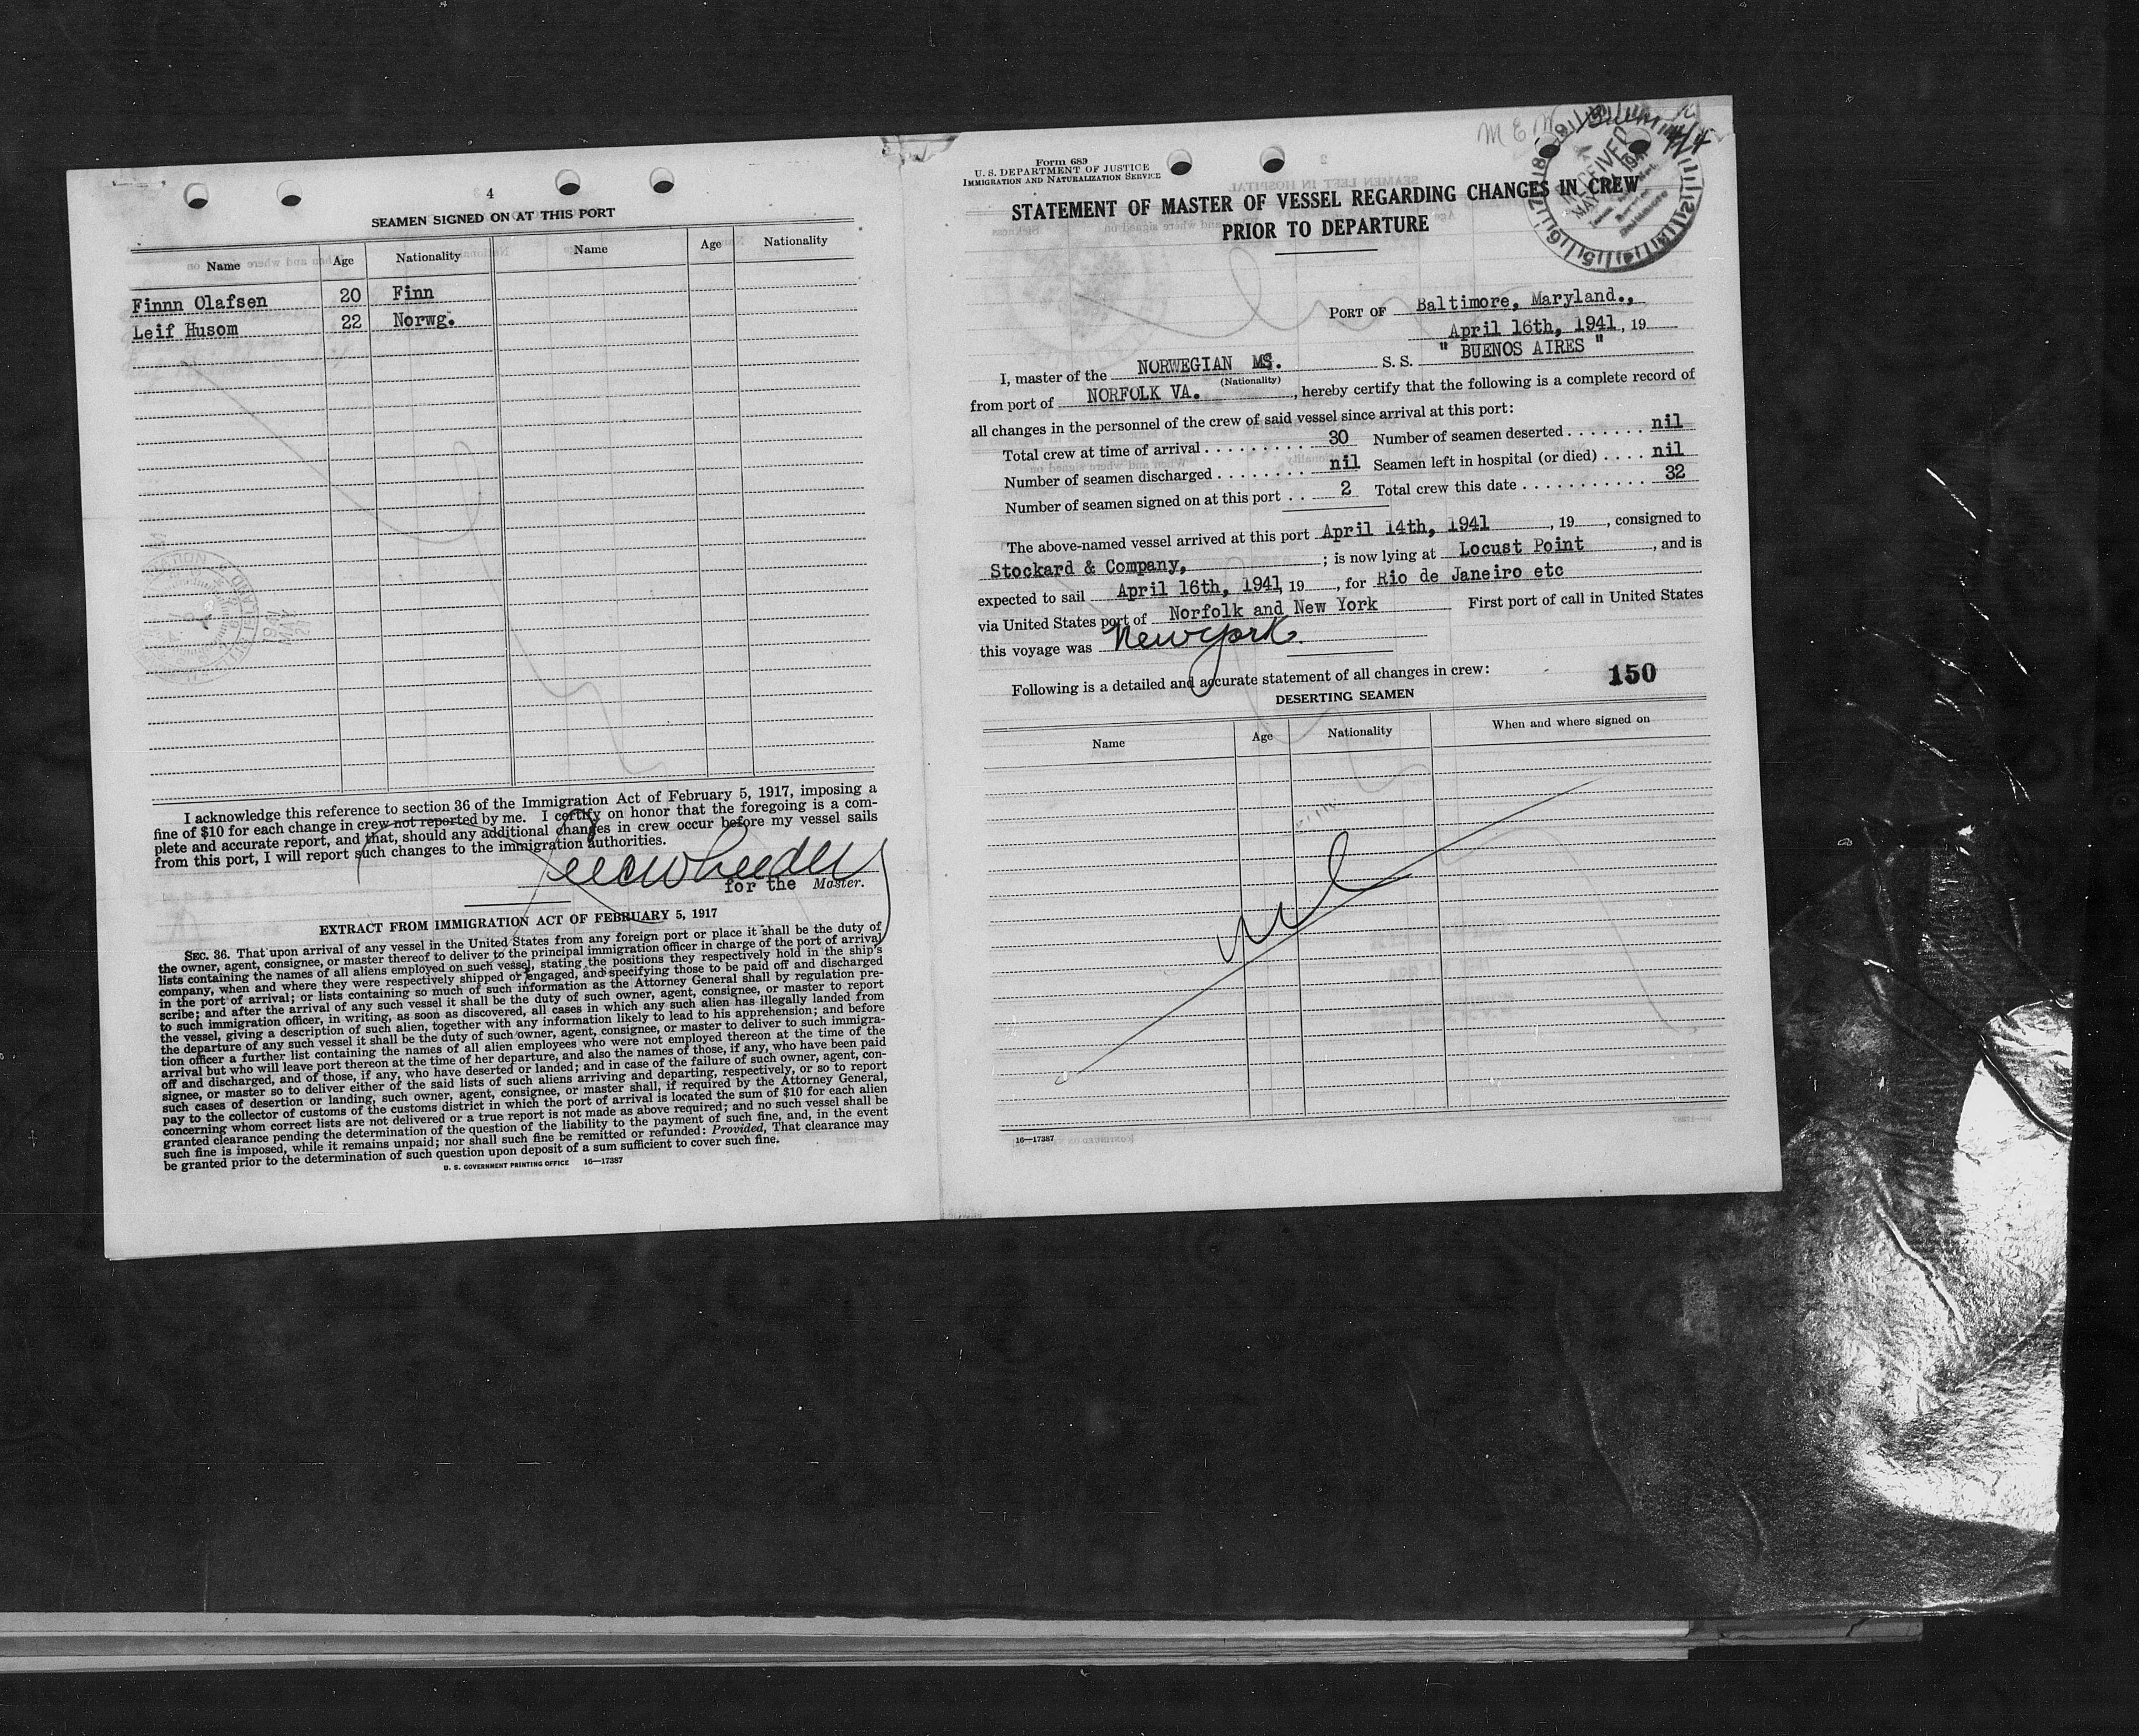 4
SEAMEN SIGNED ON AT THIS PORT
Name Age Nationality Name Age Nationality
Finnn Olafsen 20 Finn
Leif Husom 22 Norwg.
I acknowledge this reference to section 36 of the Immigration Act of February 5, 1917, imposing a
fine of $10 for each change in crew not reported by me. I certify on honor that the foregoing is a com-
plete and accurate report, and that, should any additional changes in crew occur before my vessel sails
from this port, I will report such changes to the immigration authorities.
for the Master.
EXTRACT FROM IMMIGRATION ACT OF FEBRUARY 5, 1917
SEC. 36. That upon arrival of any vessel in the United States from any foreign port or place it shall be the duty of
the owner, agent, consignee, or master thereof to deliver to the principal immigration officer in charge of the port of arrival
lists containing the names of all aliens employed on such vessel, stating the positions they respectively hold in the ship's
company, when and where they were respectively shipped or engaged, and specifying those to be paid off and discharged
in the port of arrival; or lists containing so much of such information as the Attorney General shall by regulation pre-
scribe; and after the arrival of any such vessel it shall be the duty of such owner, agent, consignee, or master to report
to such immigration officer, in writing, as soon as discovered, all cases in which any such alien has illegally landed from
the vessel, giving a description of such alien, together with any information likely to lead to his apprehension; and before
the departure of any such vessel it shall be the duty of such owner, agent, consignee, or master to deliver to such immigra-
tion officer a further list containing the names of all alien employees who were not employed thereon at the time of the
arrival but who will leave port thereon at the time of her departure, and also the names of those, if any, who have been paid
off and discharged, and of those, if any, who have deserted or landed; and in case of the failure of such owner, agent, con-
signee, or master so to deliver either of the said lists of such aliens arriving and departing, respectively, or so to report
such cases of desertion or landing, such owner, agent, consignee, or master shall, if required by the Attorney General,
pay to the collector of customs of the customs district in which the port of arrival is located the sum of $10 for each alien
concerning whom correct lists are not delivered or a true report is not made as above required; and no such vessel shall be
granted clearance pending the determination of the question of the liability to the payment of such fine, and, in the event
such fine is imposed, while it remains unpaid; nor shall such fine be remitted or refunded: Provided, That clearance may
be granted prior to the determination of such question upon deposit of a sum sufficient to cover such fine.
U. S. GOVERNMENT PRINTING OFFICE 16—17387
Form 689
U. S. DEPARTMENT OF JUSTICE
IMMIGRATION AND NATURALIZATION SERVICE
RECEIVED
MAY
STATEMENT OF MASTER OF VESSEL REGARDING CHANGES IN CREW
PRIOR TO DEPARTURE
PORT OF Baltimore, Maryland.,
April 16th, 1941, 19
I, master of the NORWEGIAN MS. S. S. " BUENOS AIRES "
(Nationality)
from port of NORFOLK VA. , hereby certify that the following is a complete record of
all changes in the personnel of the crew of said vessel since arrival at this port:
Total crew at time of arrival . . . . . . . . . 30 Number of seamen deserted . . . . . . . nil
Number of seamen discharged . . . . . . . . nil Seamen left in hospital (or died) . . . . nil
Number of seamen signed on at this port . . 2 Total crew this date . . . . . . . . . . . 32
The above-named vessel arrived at this port April 14th, 1941 , 19 , consigned to
Stockard & Company, ; is now lying at Locust Point , and is
expected to sail April 16th, 1941, 19 , for Rio de Janeiro etc
via United States port of Norfolk and New York First port of call in United States
this voyage was New York.
Following is a detailed and accurate statement of all changes in crew:
150
DESERTING SEAMEN
Name Age Nationality When and where signed on
nil
16—17387